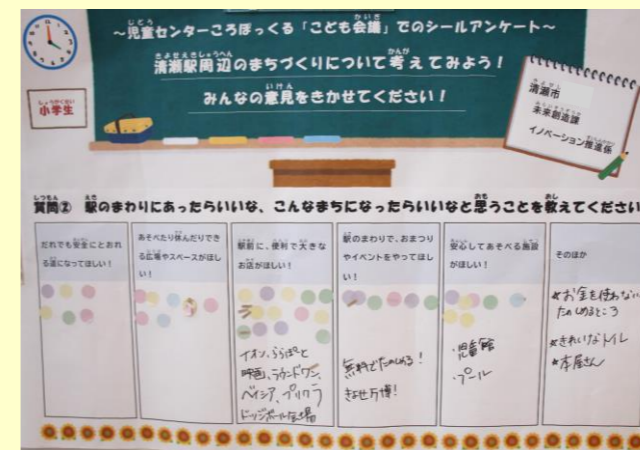 ～児童センターころぽっくる「こども会議」でのシールアンケート～
清瀬駅周辺のまちづくりについて考えてみよう！
みんなの意見をきかせてください！
小学生
清瀬市
未来創造課
イノベーション推進係
質問② 駅のまわりにあったらいいな、こんなまちになったらいいなと思うことを教えてください
だれでも安全にとおれ
る道になってほしい！
あそべたり休んだりでき
る広場やスペースがほし
い！
駅前に、便利で大きな
お店がほしい！
イオン、ららぽーと
映画、ラウンドワン、
ベイシア、プリクラ
ドッジボール会場
駅のまわりで、おまつり
やイベントをやってほし
い！
無料でたのしめる！
きよせ万博！
安心してあそべる施設
がほしい！
・児童館
・プール
そのほか
★お金を使わない
たのしめるところ
★きれいなトイレ
★本屋さん